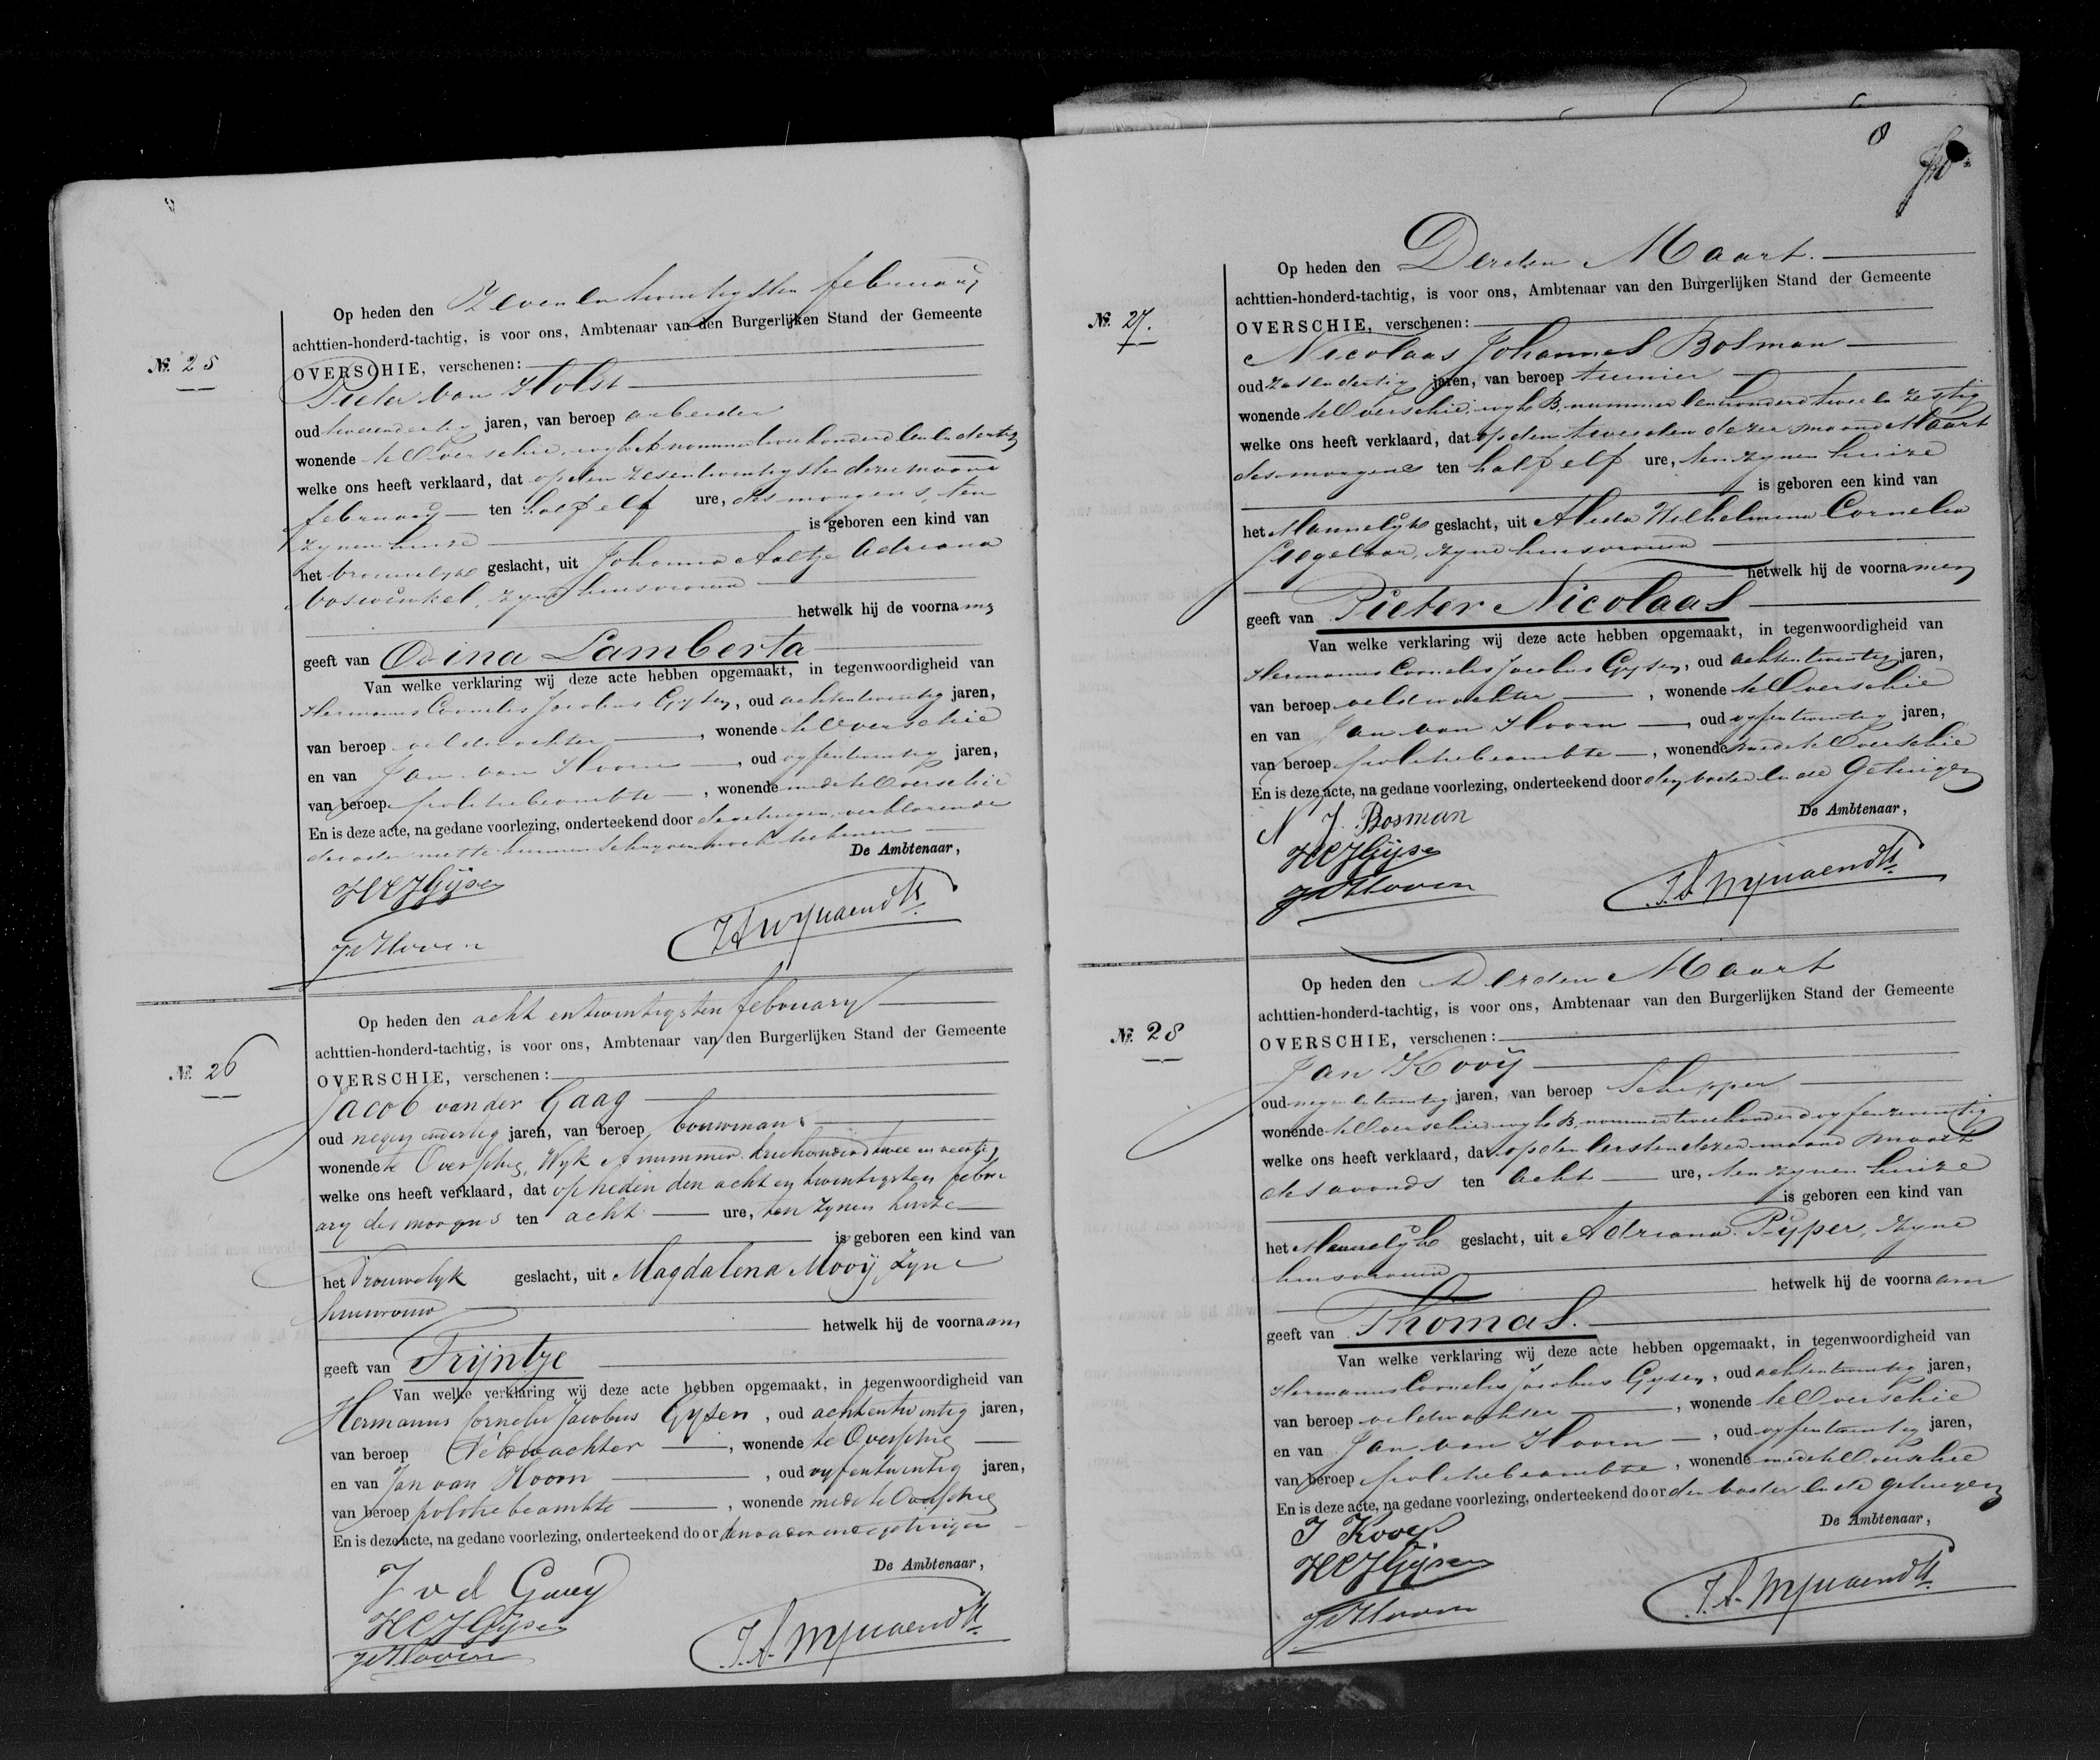 Op heden den Zevenentwintigsten februarij
achttien-honderd-tachtig, is voor ons, Ambtenaar van den Burgerlijken Stand der Gemeente
No. 25
OVERSCHIE, verschenen:
Pieter van Holst
oud tweeendertig jaren, van beroep arbeider
wonende te Overschie, wyk A nummer tweehonderd eenendertig
welke ons heeft verklaard, dat op den zesentwintigsten dezer maand
februarij ten half elf ure, des morgens, ten
zynen huize is geboren een kind van
het vrouwelyke geslacht, uit Johanna Aaltje Adriana
Boswinkel, zyne huisvrouw
hetwelk hij de voornamen
geeft van Odina Lamberta
Van welke verklaring wij deze acte hebben opgemaakt, in tegenwoordigheid van
Hermanus Cornelis Jacobus Gysen, oud achtentwintig jaren,
van beroep veldwachter, wonende te Overschie
en van Jan van Hoorn, oud vyfentwintig jaren,
van beroep politiebeambte, wonende mede te Overschie
En is deze acte, na gedane voorlezing, onderteekend door de getuigen, verklarende
de vader niet te kunnen schryven noch teekenen
De Ambtenaar,
HCJGijsen
JvHoorn
Op heden den acht entwintigsten february
achttien-honderd-tachtig, is voor ons, Ambtenaar van den Burgerlijken Stand der Gemeente
No. 26
OVERSCHIE, verschenen:
Jacob van der Gaag
oud negen endertig jaren, van beroep bouwman
wonende te Overschie, Wyk A nummer driehonderd twee en veertig
welke ons heeft verklaard, dat op heden den acht en twintigsten febru
ary des morgens ten acht ure, ten zynen huize
is geboren een kind van
het Vrouwelyk geslacht, uit Magdalena Mooij, zyne
huisvrouw
hetwelk hij de voornaam
geeft van Trijntje
Van welke verklaring wij deze acte hebben opgemaakt, in tegenwoordigheid van
Hermanus Cornelis Jacobus Gysen, oud achtentwintig jaren,
van beroep Veldwachter, wonende te Overschie
en van Jan van Hoorn, oud vyfentwintig jaren,
van beroep politie beambte, wonende mede te Overschie
En is deze acte, na gedane voorlezing, onderteekend door den vader en de getuigen
De Ambtenaar,
J v d Gaag
HCJGijsen
JvHoorn
8
Op heden den Derden Maart.
achttien-honderd-tachtig, is voor ons, Ambtenaar van den Burgerlijken Stand der Gemeente
No. 27.
OVERSCHIE, verschenen:
Nicolaas Johannes Bosman
oud zesendertig jaren, van beroep tuinier
wonende te Overschie, wyk B, nummer eenhonderd twee en zestig
welke ons heeft verklaard, dat op den tweeden dezer maand Maart
des morgens ten half elf ure, ten zynen huize
is geboren een kind van
het Mannelyke geslacht, uit Alida Wilhelmina Cornelia
zyne huisvrouw
hetwelk hij de voornamen
geeft van Pieter Nicolaas
Van welke verklaring wij deze acte hebben opgemaakt, in tegenwoordigheid van
Hermanus Cornelis Jacobus Gysen, oud achtentwintig jaren,
van beroep veldwachter, wonende te Overschie
en van Jan van Hoorn, oud vyfentwintig jaren,
van beroep politiebeambte, wonende mede te Overschie
En is deze acte, na gedane voorlezing, onderteekend door den vader en de Getuigen
De Ambtenaar,
N J. Bosman
HCJGijsen
JvHoorn
Op heden den Derden Maart
achttien-honderd-tachtig, is voor ons, Ambtenaar van den Burgerlijken Stand der Gemeente
No. 28
OVERSCHIE, verschenen:
Jan Kooij
oud negenentwintig jaren, van beroep Schipper
wonende te Overschie wyk B, nummer tweehonderd vyfenzeventig
welke ons heeft verklaard, dat op den eersten dezer maand maart
des avonds ten acht ure, ten zynen huize
is geboren een kind van
het Mannelyk geslacht, uit Adriana Pijper, zyne
huisvrouw
hetwelk hij de voornaam
geeft van Thomas.
Van welke verklaring wij deze acte hebben opgemaakt, in tegenwoordigheid van
Hermanus Cornelis Jacobus Gysen, oud achtentwintig jaren,
van beroep veldwachter, wonende te Overschie
en van Jan van Hoorn, oud vyfentwintig jaren,
van beroep politiebeambte, wonende mede te Overschie
En is deze acte, na gedane voorlezing, onderteekend door den vader en de getuigen
De Ambtenaar,
J Kooij
HCJGijsen
JvHoorn